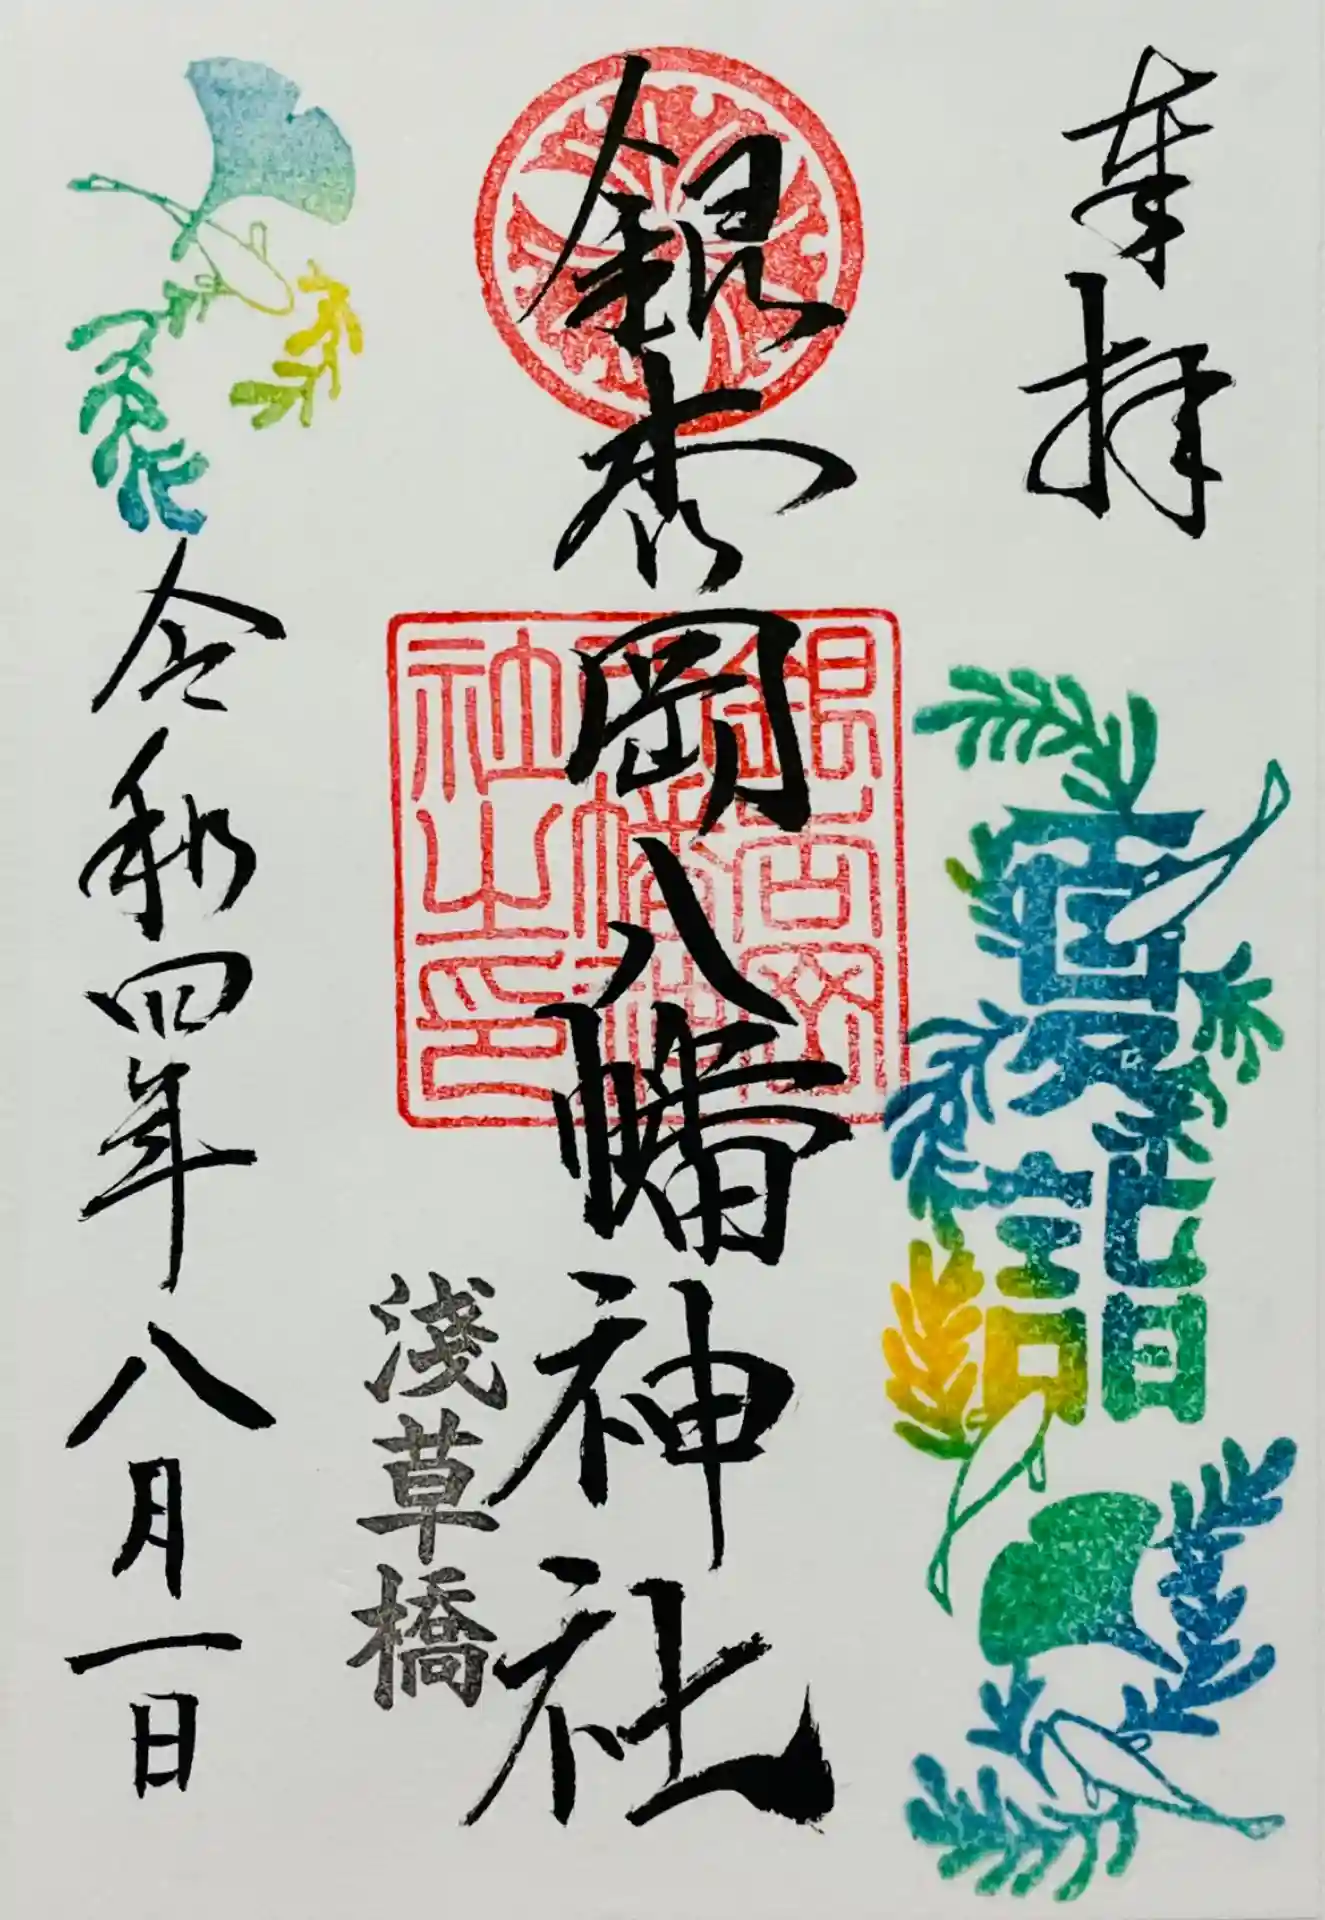 奉拝
夏詣
銀杏岡八幡神社
銀杏岡
八幡神
社之印
淺草橋
令和四年八月一日